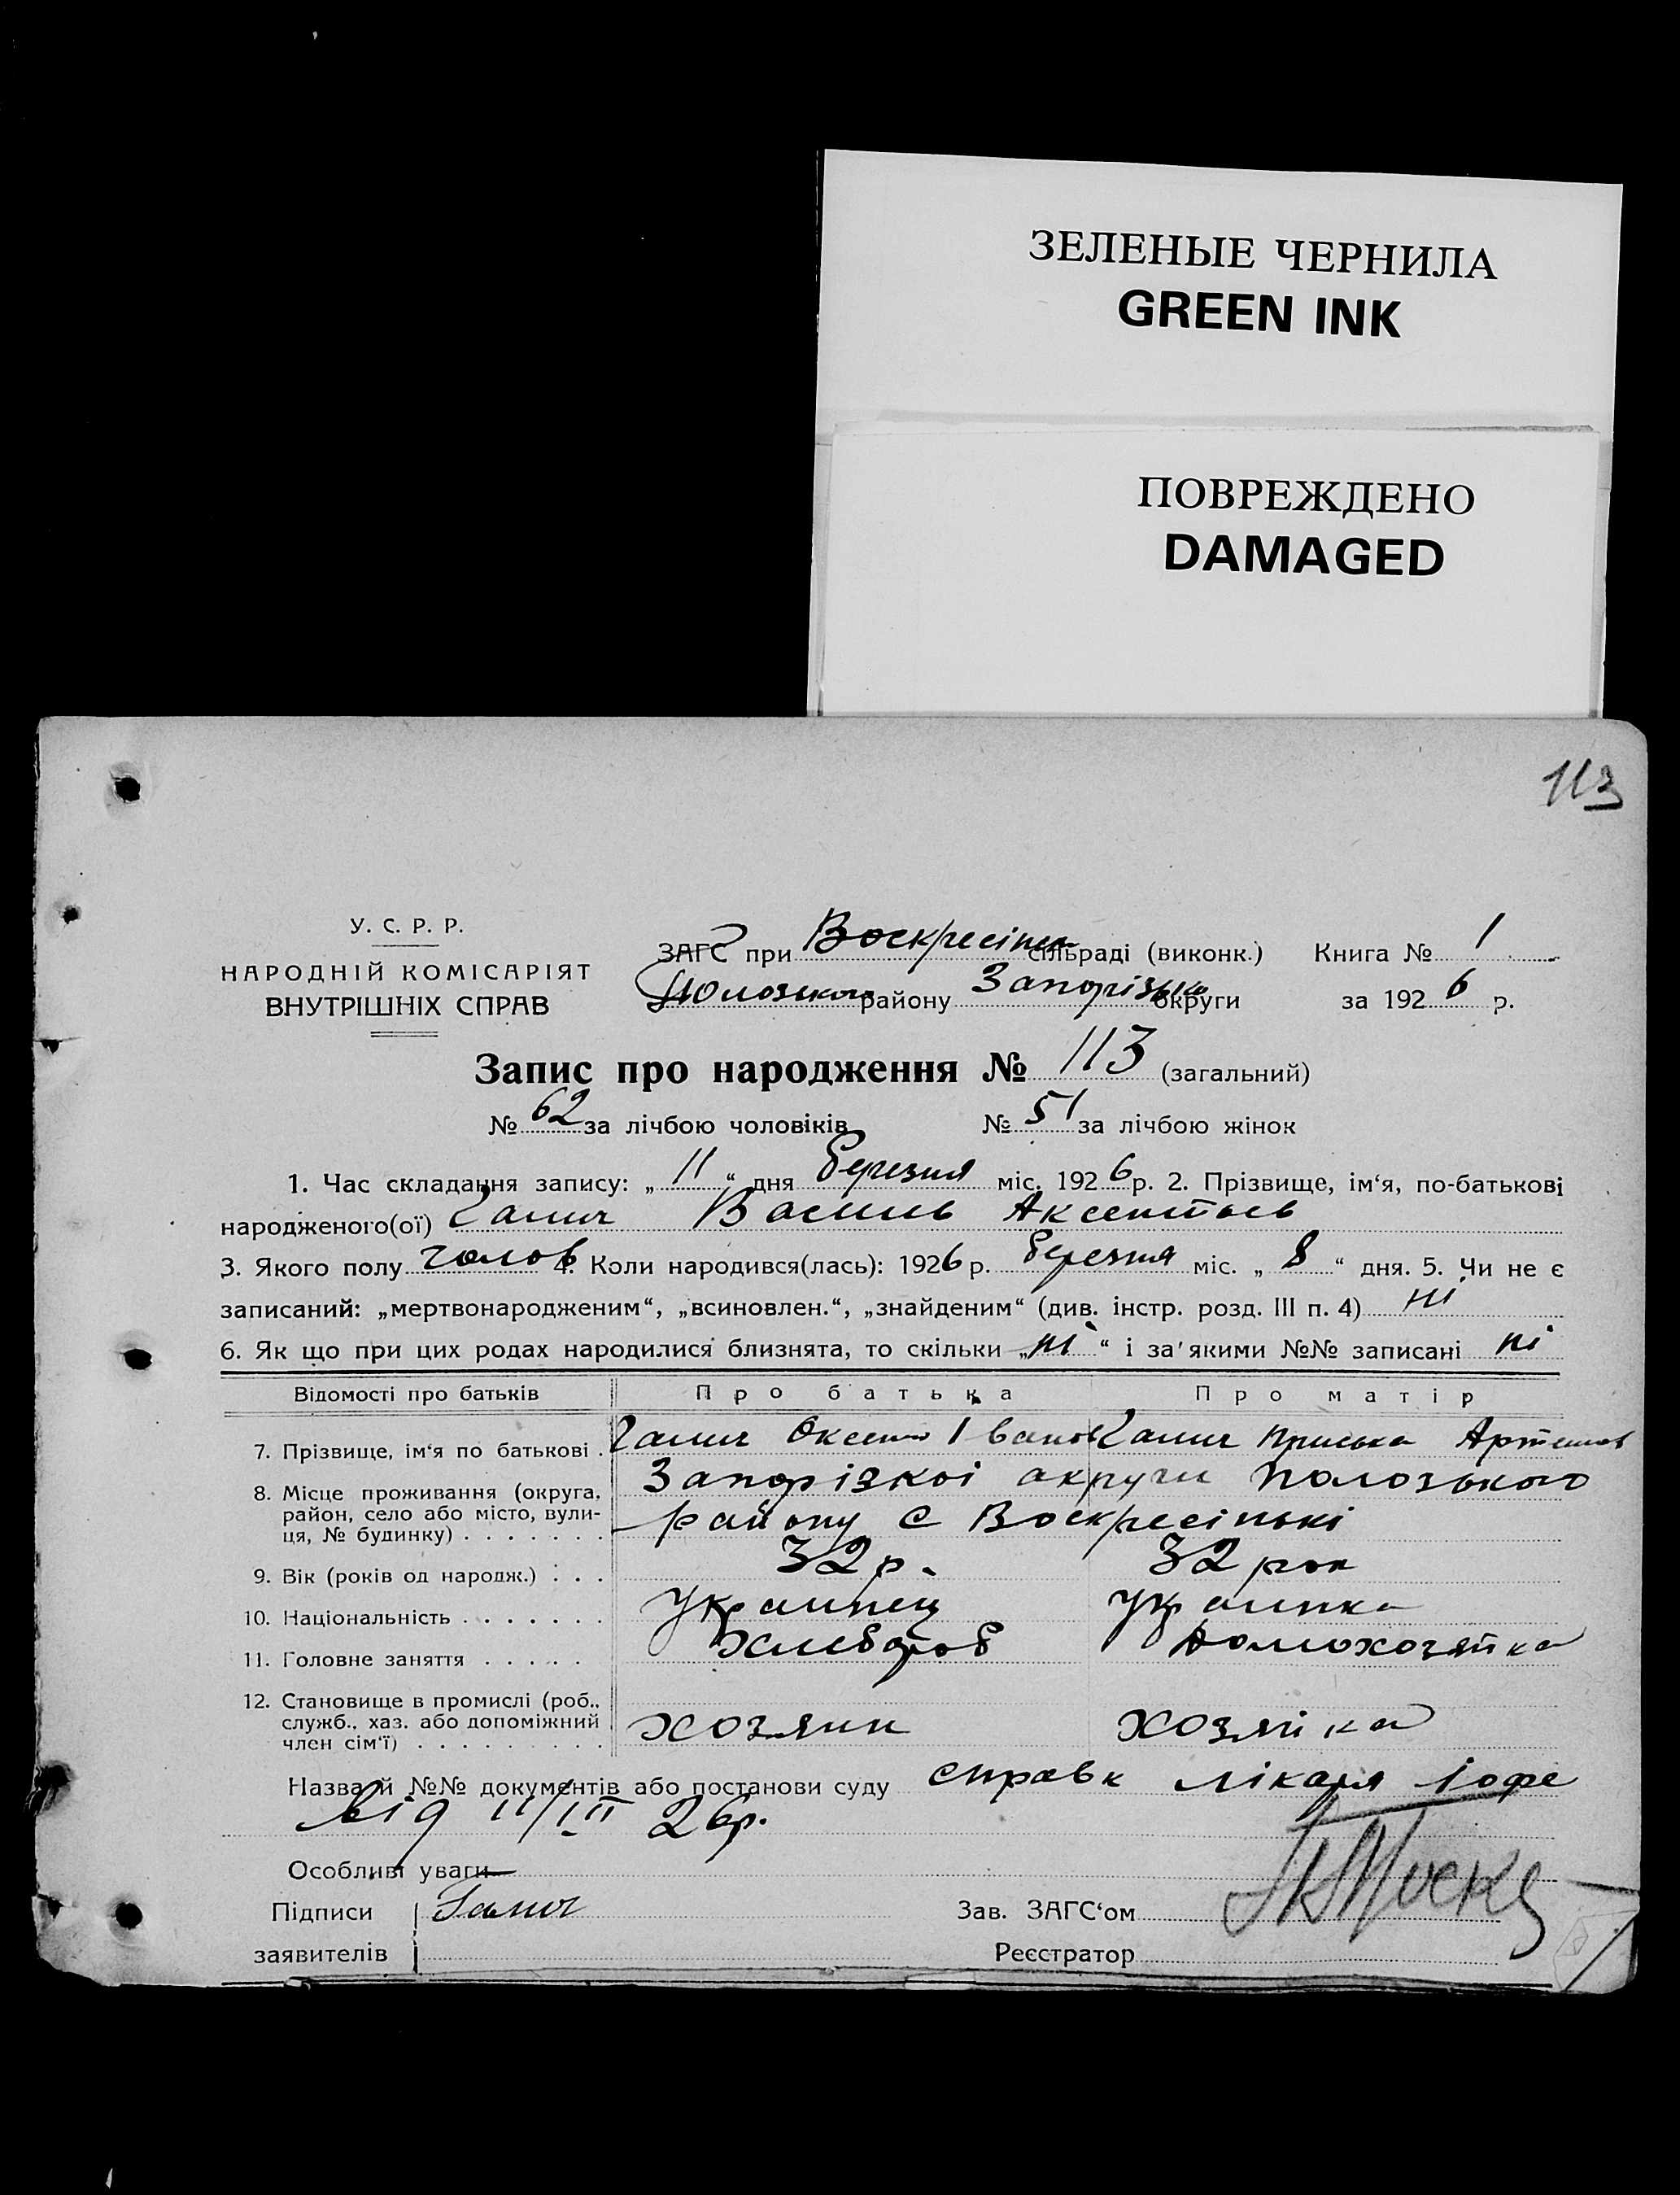 ЗЕЛЕНЫЕ ЧЕРНИЛА
GREEN INK
ПОВРЕЖДЕНО
DAMAGED
113
У. С. Р. Р.
НАРОДНІЙ КОМІСАРІЯТ
ВНУТРІШНІХ СПРАВ
ЗАГС при Воскресінськ сільраді (виконк.) Книга № 1
Полозького району Запорізько округи за 1926 р.
Запис про народження № 113 (загальний)
№ 62 за лічбою чоловіків № 51 за лічбою жінок
1. Час складання запису: „ 11 “ дня березня міс. 1926 р. 2. Прізвище, ім‘я, по-батькові
народженого(ої) Галич Василь Аксентьев
3. Якого полу голов 4. Коли народився(лась): 1926 р. березня міс. „ 8 “ дня. 5. Чи не є
записаний: „мертвонародженим“, „всиновлен.“, „знайденим“ (див. інстр. розд. III п. 4) ні
6. Як що при цих родах народилися близнята, то скільки „ ні “ і за якими №№ записані ні
Відомості про батьків Про батька Про матір
7. Прізвище, ім‘я по батькові . Галич Оксент Іванов Галич Приська Артемов
8. Місце проживання (округа, район, село або місто, вулиця, № будинку) . . . . . . . Запорізкоі округи Полозького
району с Воскресінькі
9. Вік (років од народж.) : . . 32 р. 32 рок
10. Національність . . . . . . . Украинец украинка
11. Головне заняття . . . . . Хлебороб домохозяйка
12. Становище в промислі (роб.,
служб., хаз. або допоміжний
член сім‘ї) . . . . . . . . . хозяин хозяйка
Назва й №№ документів або постанови суду справк лікаря Іофе
від 11/III 26 р.
Особливі уваги
Підписи Галич Зав. ЗАГС‘ом
заявителів Реєстратор